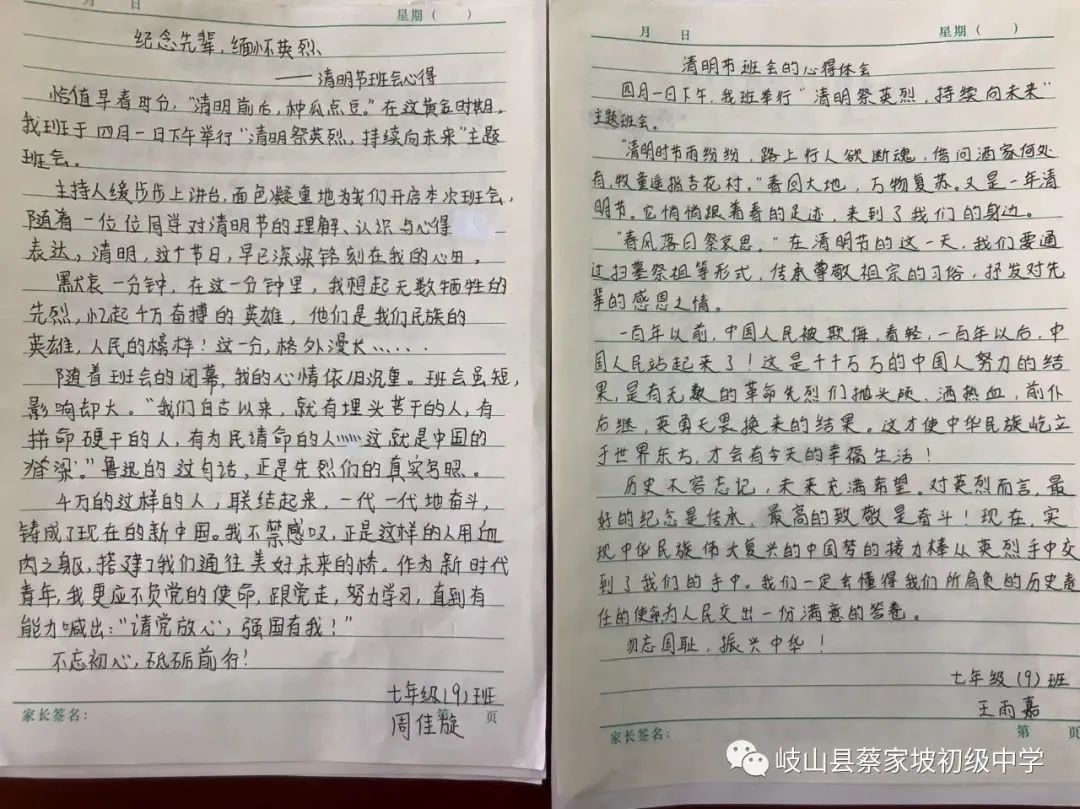 月 日 星期（ ）
纪念先辈，缅怀英烈、
——清明节班会心得
恰值早春时分，"清明前后，种瓜点豆。"在这黄金时期，
我班于四月一日下午举行"清明祭英烈，持续向未来"主题
班会。
主持人缓步步上讲台，面色凝重地为我们开启本次班会，
随着一位位同学对清明节的理解、认识与心得
表达，清明，这个节日，早已深深铭刻在我的心里。
默哀一分钟，在这一分钟里，我想起无数牺牲的
先烈，忆起千万奋搏的英雄，他们是我们民族的
英雄，人民的榜样！这一分，格外漫长……
随着班会的闭幕，我的心情依旧沉重。班会虽短，
影响却大。"我们自古以来，就有埋头苦干的人，有
拼命硬干的人，有为民请命的人……这就是中国的
脊梁。"鲁迅的这句话，正是先烈们的真实写照。
千万的这样的人，联结起来，一代一代地奋斗，
铸成了现在的新中国。我不禁感叹，正是这样的人用血
肉之躯，搭建了我们通往美好未来的桥。作为新时代
青年，我更应不负党的使命，跟党走，努力学习，直到有
能力喊出："请党放心，强国有我！"
不忘初心，砥砺前行！
七年级（9）班
周佳旋
家长签名： 第 页
月 日 星期（ ）
清明节班会的心得体会
四月一日下午，我班举行"清明祭英烈，持续向未来"
主题班会。
"清明时节雨纷纷，路上行人欲断魂，借问酒家何处
有，牧童遥指杏花村。"春回大地，万物复苏。又是一年清
明节。它悄悄跟着春的足迹，来到了我们的身边。
"春风落日祭哀思。"在清明节的这一天，我们要通
过扫墓祭祖等形式，传承尊敬祖宗的习俗，抒发对先
辈的感恩之情。
一百年以前，中国人民被欺侮，看轻，一百年以后，中
国人民站起来了！这是千千万万的中国人努力的结
果，是有无数的革命先烈们抛头颅，洒热血，前仆
后继，英勇无畏换来的结果。这才使中华民族屹立
于世界东方，才会有今天的幸福生活！
历史不容忘记，未来充满希望。对英烈而言，最
好的纪念是传承，最高的致敬是奋斗！现在，实
现中华民族伟大复兴的中国梦的接力棒从英烈手中交
到了我们的手中。我们一定会懂得我们所肩负的历史责
任的使命为人民交出一份满意的答卷。
勿忘国耻，振兴中华！
七年级（9）班
王雨嘉
家长签名： 第 页
岐山县蔡家坡初级中学